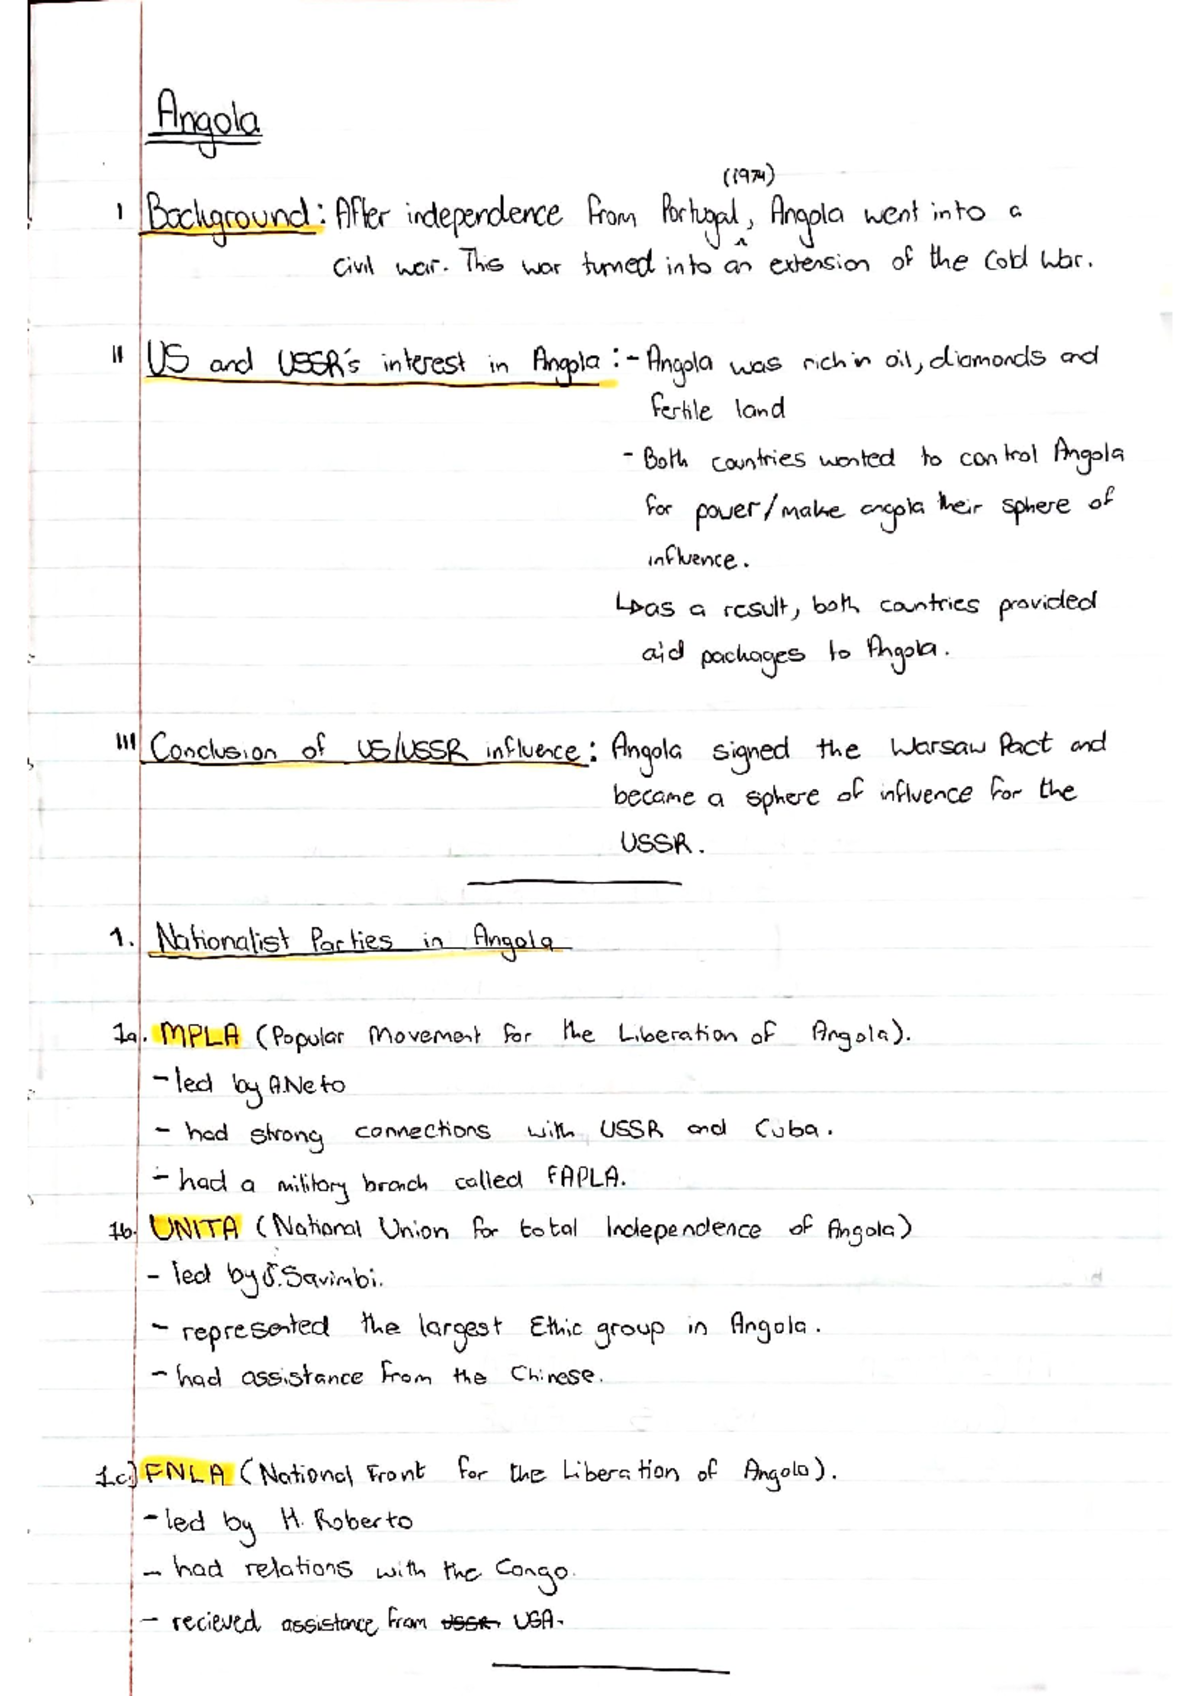 Angola
(1974)
I Background: After independence from Portugal, Angola went into a
civil war. This war turned into an extension of the Cold War.
II US and USSR's interest in Angola: - Angola was rich in oil, diamonds and
fertile land
- Both countries wanted to control Angola
for power/make angola their sphere of
influence.
↳ as a result, both countries provided
aid packages to Angola.
III Conclusion of US/USSR influence: Angola signed the Warsaw Pact and
became a sphere of influence for the
USSR.
1. Nationalist Parties in Angola
1a. MPLA (Popular Movement for the Liberation of Angola).
- led by A.Neto
- had strong connections with USSR and Cuba.
- had a military branch called FAPLA.
1b. UNITA (National Union for total Independence of Angola)
- led by J.Savimbi.
- represented the largest Ethic group in Angola.
- had assistance from the Chinese.
1.c) FNLA (National Front for the Liberation of Angola).
- led by H. Roberto
- had relations with the Congo.
- recieved assistance from USSR USA.